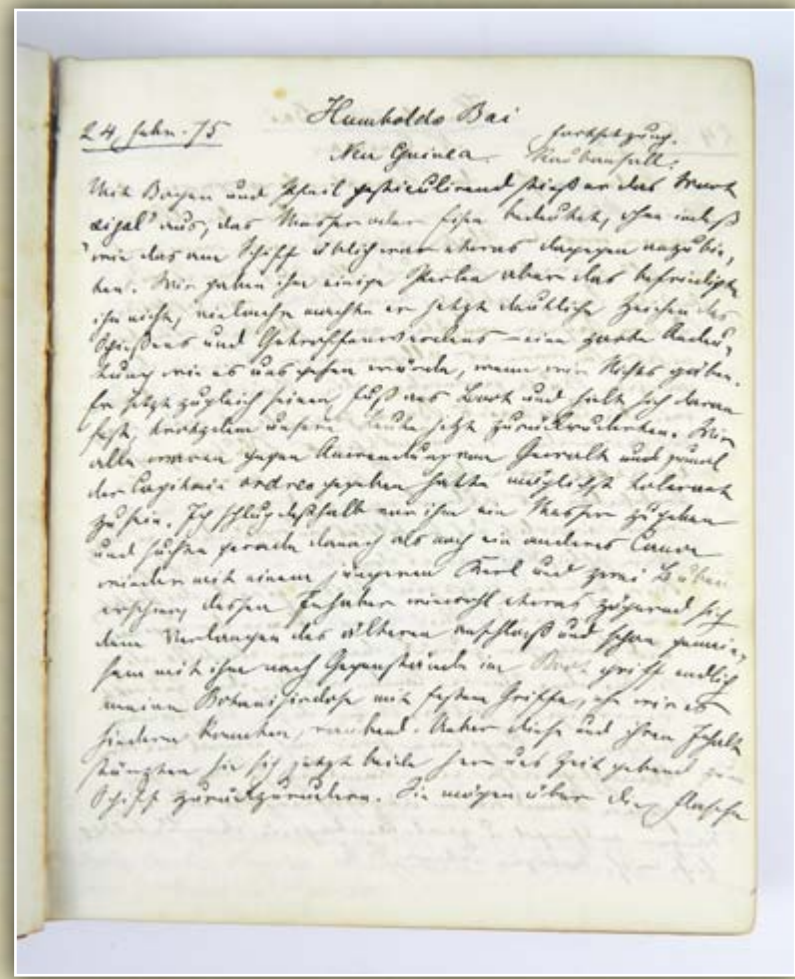 24 Febr. 75
Humboldts Bai
Neu Guinea. Fortsetzung.
Raubanfall:
Mit Bogen und Pfeil gesticulirend stieß er das Wort
"sigal" aus, das Messer oder Eisen bedeutet, ohne indeß
wie das am Schiff üblich war etwas dagegen anzubie-
ten. Wir gaben ihm einige Perlen aber das befriedigte
ihn nicht, vielmehr machte er jetzt deutliche Zeichen des
Schießens und Getroffenwerdens – eine zarte Andeu-
tung wie es uns gehen würde, wenn wir Nichts gäben.
Er setzt zugleich seinen Fuß ans Boot und hält sich daran
fest, trotzdem unsere Leute jetzt zurückruderten. Wir
alle waren gegen Anwendung von Gewalt und zumal
der Capitain ordre gegeben hatte möglichst tolerant
zu sein. Ich schlug deßhalb vor ihm ein Messer zu geben
und suchte gerade danach als noch ein anderes Canoe
wieder mit einem jüngeren Kerl und zwei Buben
erschien, dessen Inhaber wiewohl etwas zögernd sich
dem Verlangen des älteren anschloß und schon gemein-
sam mit ihm nach Gegenstände im Boot griff endlich
meine Botanisirdose mit festem Griffe, ehe wir es
hindern konnten, raubend. Ueber diese und ihren Inhalt
stürzten sie sich jetzt beide her uns Zeit gebend zum
Schiff zurückzurudern. Sie mögen über die Flasche